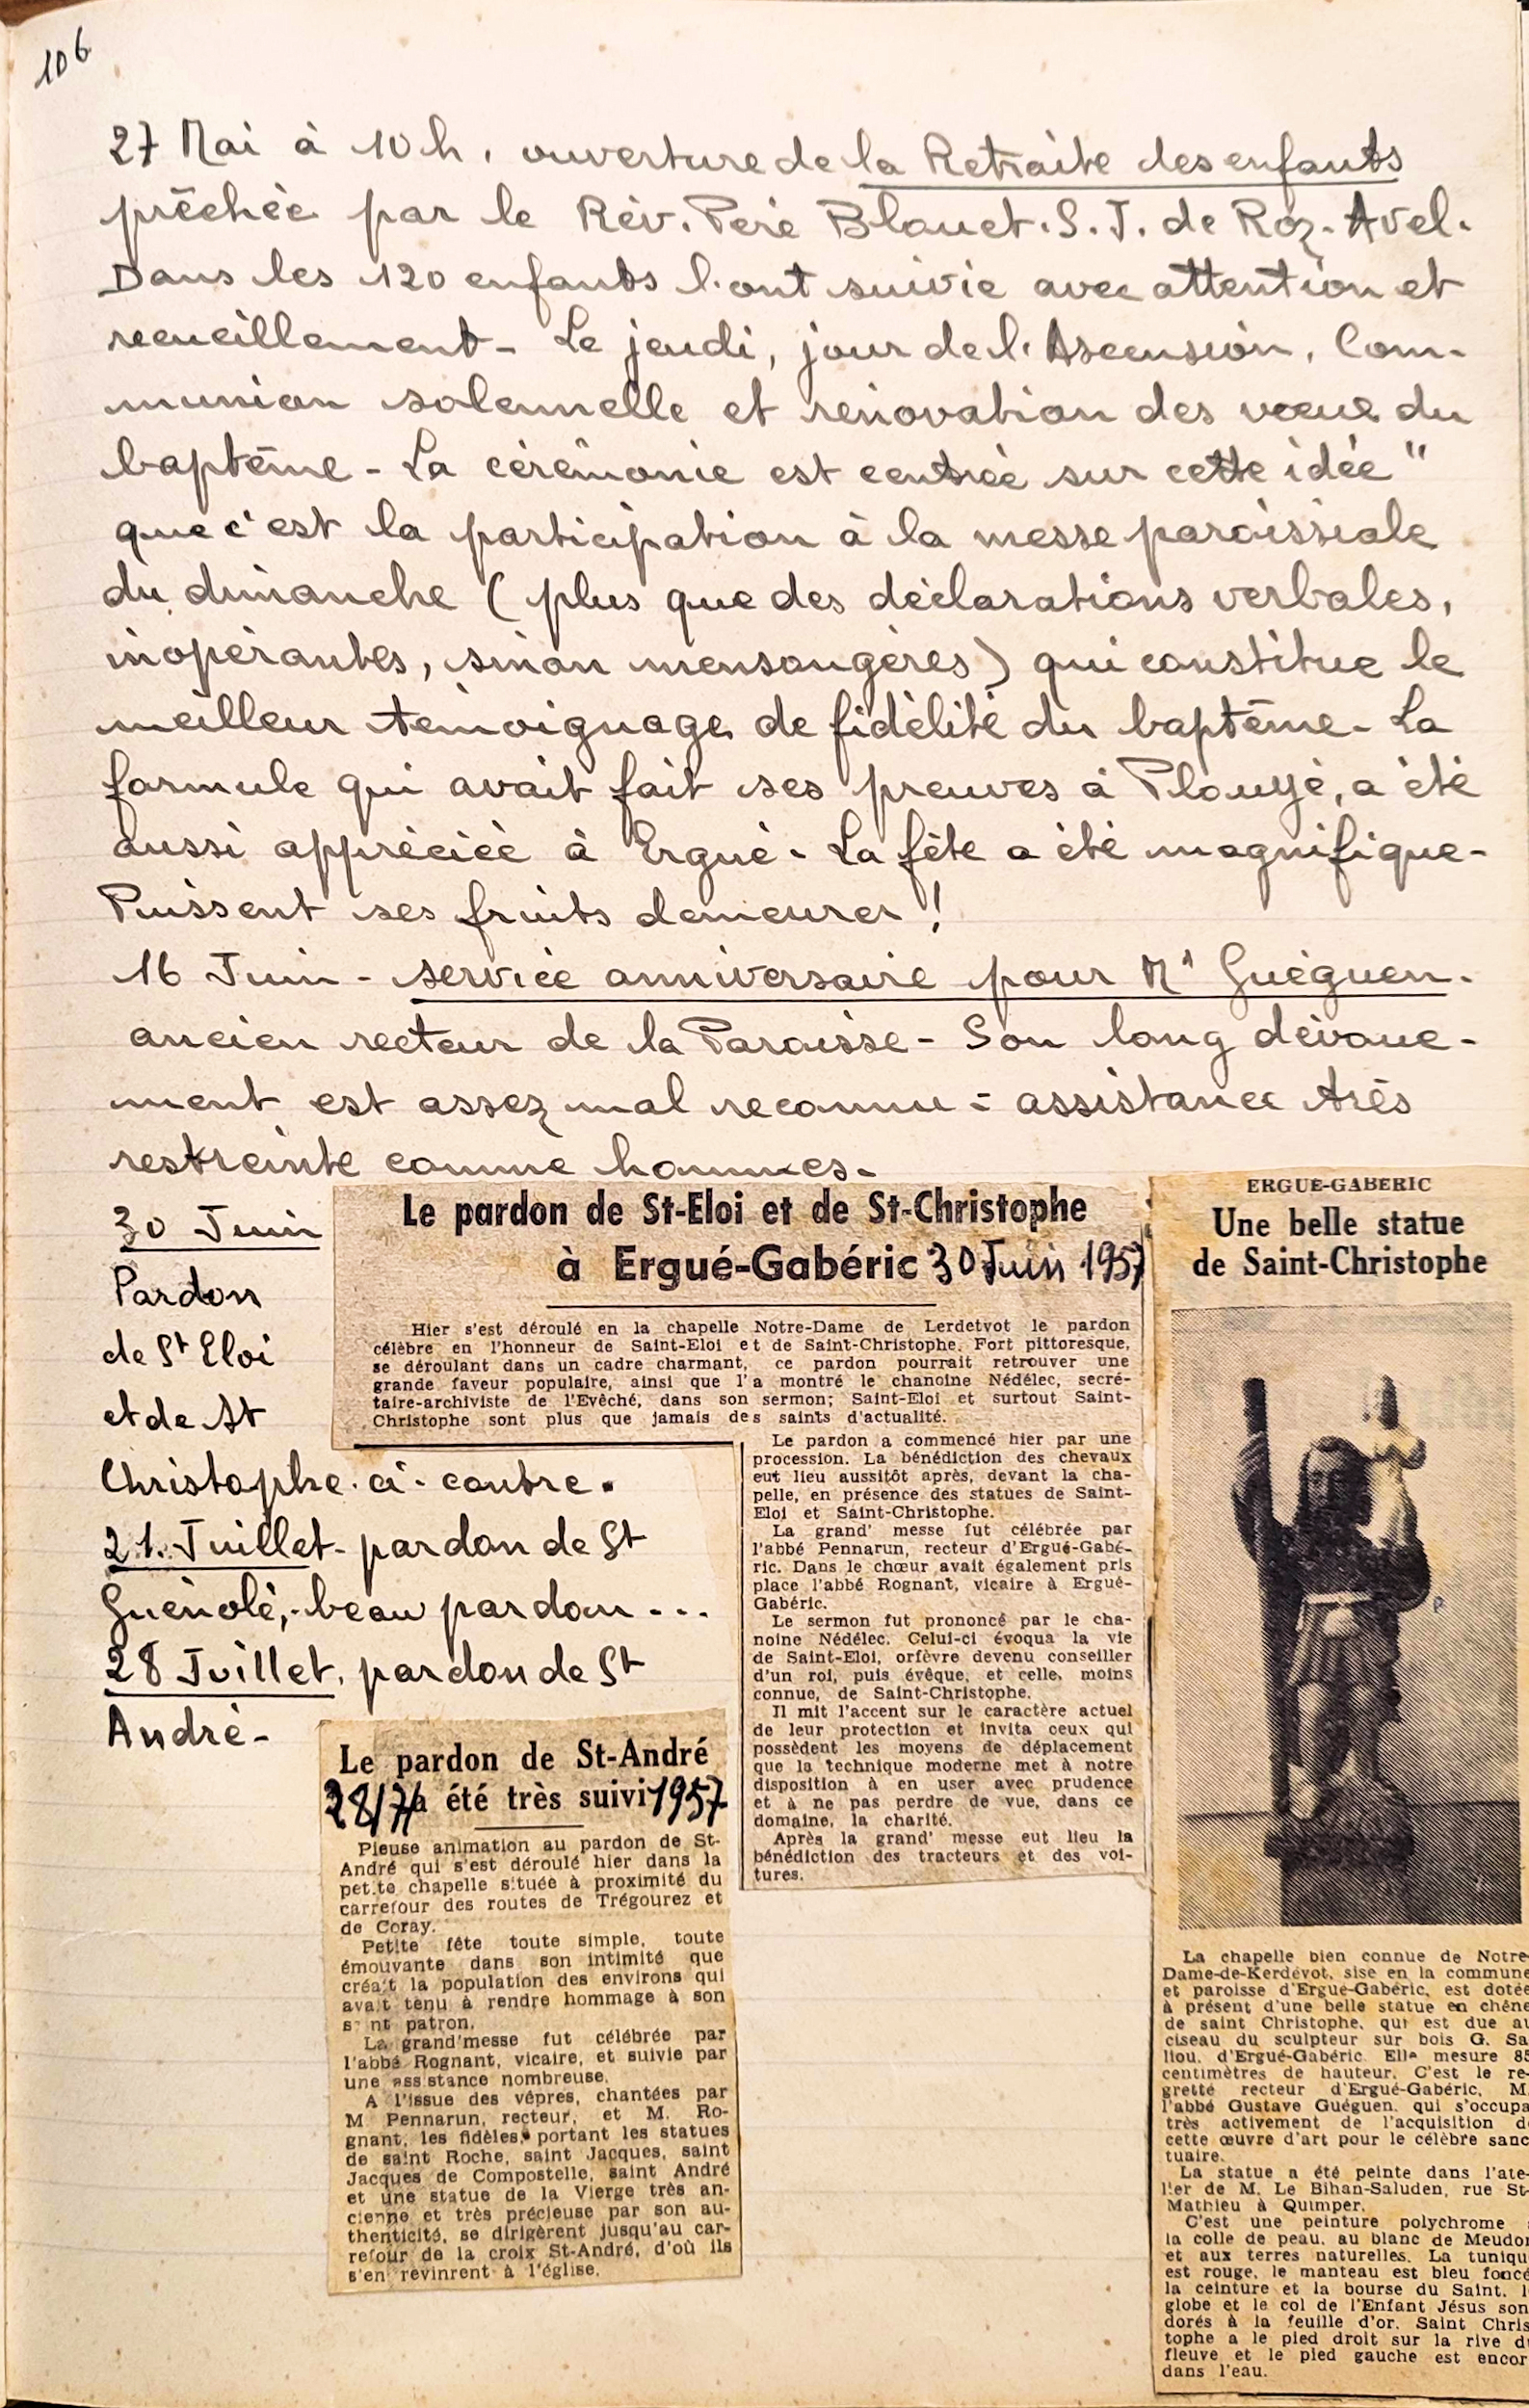 106
27 Mai à 10 h. ouverture de la Retraite des enfants
prêchée par le Rév. Père Blouet. S. J. de Roz-Avel.
Dans les 120 enfants l'ont suivie avec attention et
recueillement - Le jeudi, jour de l'Ascension, Com-
munion solennelle et rénovation des vœux du
baptême - La cérémonie est centrée sur cette idée "
que c'est la participation à la messe paroissiale
du dimanche (plus que des déclarations verbales,
inopérantes, sinon mensongères) qui constitue le
meilleur témoignage de fidélité du baptême - La
formule qui avait fait ses preuves à Plouyé, a été
aussi appréciée à Ergué. La fête a été magnifique -
Puissent ses fruits demeurer !
16 Juin - service anniversaire pour Mr Guéguen.
ancien recteur de la Paroisse - Son long dévoue-
ment est assez mal reconnu = assistance très
restreinte comme hommes -
30 Juin
Pardon
de St Eloi
et de St
Christophe. ci-contre.
21. Juillet - pardon de St
Guénolé, beau pardon ...
28 Juillet, pardon de St
André -
Le pardon de St-Eloi et de St-Christophe
à Ergué-Gabéric 30 Juin 1957
Hier s'est déroulé en la chapelle Notre-Dame de Lerdetvot le pardon
célèbre en l'honneur de Saint-Eloi et de Saint-Christophe. Fort pittoresque,
se déroulant dans un cadre charmant, ce pardon pourrait retrouver une
grande faveur populaire, ainsi que l'a montré le chanoine Nédélec, secré-
taire-archiviste de l'Evêché, dans son sermon; Saint-Eloi et surtout Saint-
Christophe sont plus que jamais des saints d'actualité.
Le pardon a commencé hier par une
procession. La bénédiction des chevaux
eut lieu aussitôt après, devant la cha-
pelle, en présence des statues de Saint-
Eloi et Saint-Christophe.
La grand' messe fut célébrée par
l'abbé Pennarun, recteur d'Ergué-Gabé-
ric. Dans le chœur avait également pris
place l'abbé Rognant, vicaire à Ergué-
Gabéric.
Le sermon fut prononcé par le cha-
noine Nédélec. Celui-ci évoqua la vie
de Saint-Eloi, orfèvre devenu conseiller
d'un roi, puis évêque, et celle, moins
connue, de Saint-Christophe.
Il mit l'accent sur le caractère actuel
de leur protection et invita ceux qui
possèdent les moyens de déplacement
que la technique moderne met à notre
disposition à en user avec prudence
et à ne pas perdre de vue, dans ce
domaine, la charité.
Après la grand' messe eut lieu la
bénédiction des tracteurs et des voi-
tures.
Le pardon de St-André
28/7/ a été très suivi 1957
Pieuse animation au pardon de St-
André qui s'est déroulé hier dans la
petite chapelle située à proximité du
carrefour des routes de Trégourez et
de Coray.
Petite fête toute simple, toute
émouvante dans son intimité que
créait la population des environs qui
avait tenu à rendre hommage à son
s nt patron.
La grand'messe fut célébrée par
l'abbé Rognant, vicaire, et suivie par
une assistance nombreuse.
A l'issue des vêpres, chantées par
M Pennarun, recteur, et M. Ro-
gnant, les fidèles, portant les statues
de saint Roche, saint Jacques, saint
Jacques de Compostelle, saint André
et une statue de la Vierge très an-
cienne et très précieuse par son au-
thenticité, se dirigèrent jusqu'au car-
refour de la croix St-André, d'où ils
s'en revinrent à l'église.
ERGUE-GABERIC
Une belle statue
de Saint-Christophe
La chapelle bien connue de Notre-
Dame-de-Kerdévot, sise en la commune
et paroisse d'Ergué-Gabéric, est dotée
à présent d'une belle statue en chêne
de saint Christophe, qui est due au
ciseau du sculpteur sur bois G. Sa
liou, d'Ergué-Gabéric. Elle mesure 85
centimètres de hauteur. C'est le re-
gretté recteur d'Ergué-Gabéric, M.
l'abbé Gustave Guéguen, qui s'occupa
très activement de l'acquisition de
cette œuvre d'art pour le célèbre sanc
tuaire.
La statue a été peinte dans l'ate-
lier de M. Le Bihan-Saluden, rue St-
Mathieu à Quimper.
C'est une peinture polychrome
la colle de peau, au blanc de Meudon
et aux terres naturelles. La tuniqu
est rouge, le manteau est bleu foncé
la ceinture et la bourse du Saint, l
globe et le col de l'Enfant Jésus son
dorés à la feuille d'or. Saint Chris
tophe a le pied droit sur la rive du
fleuve et le pied gauche est encor
dans l'eau.